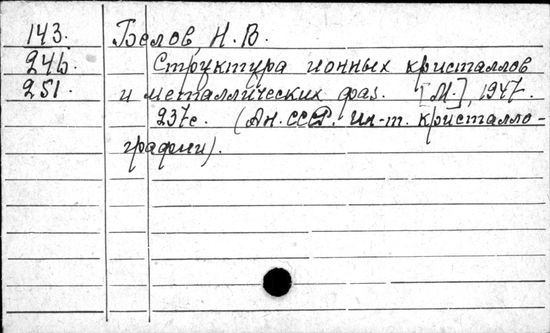 143. Белов, Н. В.
246. Структура ионных кристаллов
251. и металлических фаз. [М.], 1947.
237с. (Ан. СССР. Ин-т. кристалло-
графии).